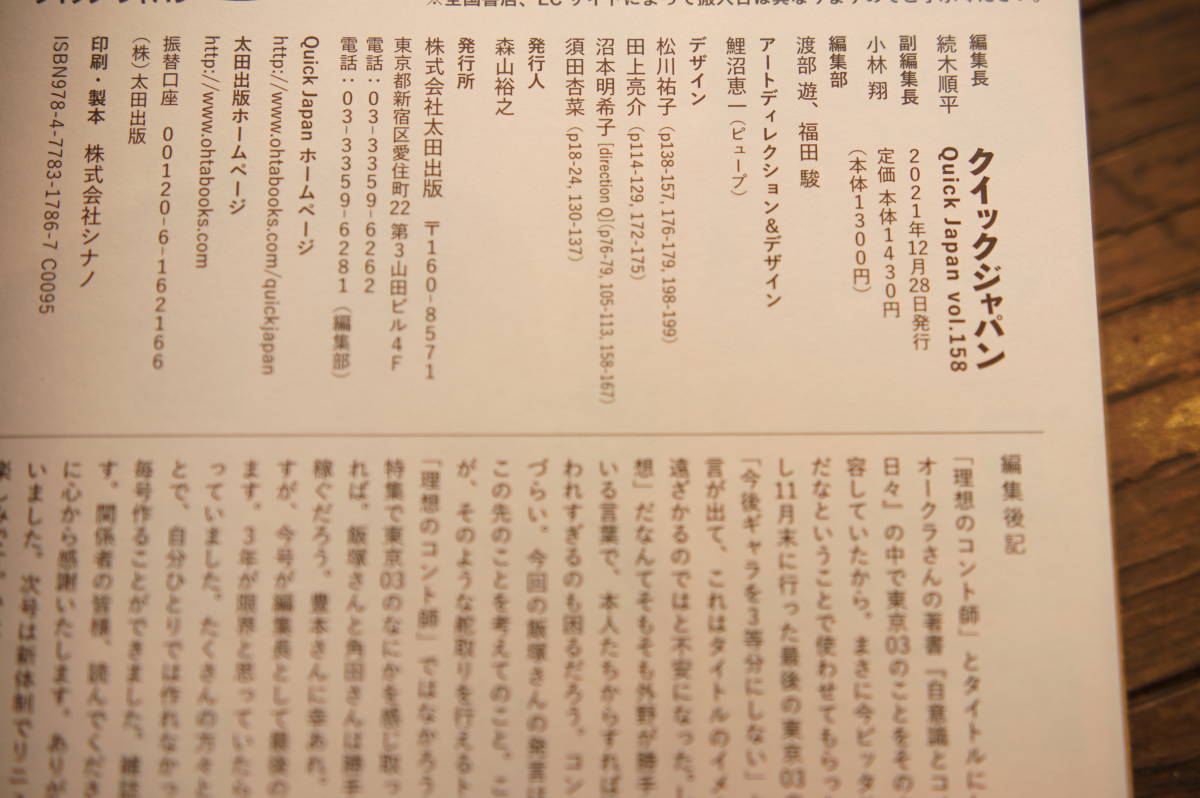 クイックジャパン
Quick Japan vol.158
2021年12月28日発行
定価 本体1430円
(本体1300円)
編集長
続木順平
副編集長
小林 翔
編集部
渡部 遊、福田 駿
アートディレクション&デザイン
鯉沼恵一(ピュープ)
デザイン
松川祐子(p138-157, 176-179, 198-199)
田上亮介(p114-129, 172-175)
沼本明希子[direction Q](p76-79, 105-113, 158-167)
須田杏菜(p18-24, 130-137)
発行人
森山裕之
発行所
株式会社太田出版 〒160-8571
東京都新宿区愛住町22 第3山田ビル4F
電話:03-3359-6262
電話:03-3359-6281(編集部)
Quick Japan ホームページ
http://www.ohtabooks.com/quickjapan
太田出版ホームページ
http://www.ohtabooks.com
振替口座 00120-6-162166
(株)太田出版
印刷・製本 株式会社シナノ
ISBN978-4-7783-1786-7 C0095
編集後記
「理想のコント師」とタイトルに
オークラさんの著書『自意識とコ
日々』の中で東京03のことをその
容していたから。まさに今ピッタ
だなということで使わせてもらっ
し11月末に行った最後の東京03
「今後ギャラを3等分にしない」
言が出て、これはタイトルのイメ
遠ざかるのではと不安になった。
想」だなんてそもそも外野が勝手
いる言葉で、本人たちからすれば
われすぎるのも困るだろう。コン
づらい。今回の飯塚さんの発言は
この先のことを考えてのこと。こ
が、そのような舵取りを行えると
「理想のコント師」ではなかろう
特集で東京03のなにかを感じ取っ
れば。飯塚さんと角田さんは勝手
稼ぐだろう。豊本さんに幸あれ。
すが、今号が編集長として最後の
ます。3年が限界と思っていたな
っていました。たくさんの方々と
とで、自分ひとりでは作れなかっ
毎号作ることができました。雑誌
す。関係者の皆様、読んでくださ
に心から感謝いたします。ありが
いました。次号は新体制でリニ